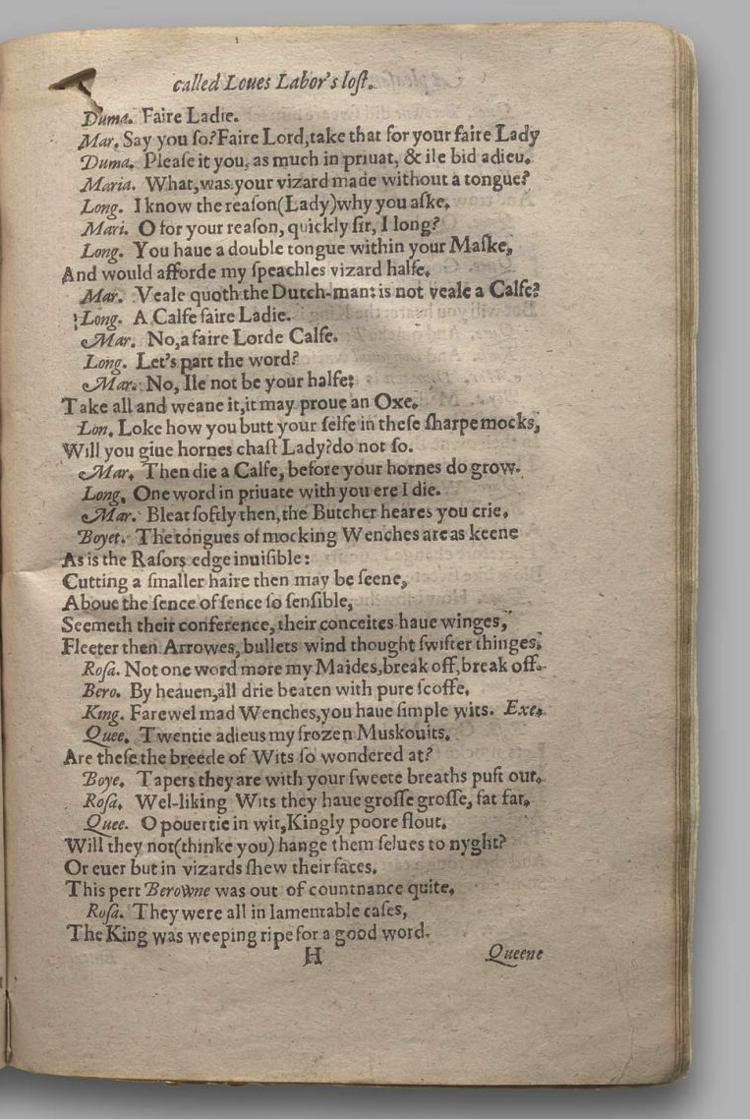 called Loues Labor's lost.
Duma. Faire Ladie.
Mar. Say you so? Faire Lord, take that for your faire Lady
Duma. Please it you, as much in priuat, & ile bid adieu.
Maria. What, was your vizard made without a tongue?
Long. I know the reason (Lady) why you aske.
Mari. O for your reason, quickly sir, I long?
Long. You haue a double tongue within your Maske,
And would afforde my speachles vizard halfe.
Mar. Veale quoth the Dutch-man: is not veale a Calfe?
Long. A Calfe faire Ladie.
Mar. No, a faire Lorde Calfe.
Long. Let's part the word?
Mar. No, Ile not be your halfe:
Take all and weane it, it may proue an Oxe.
Lon. Loke how you butt your selfe in these sharpe mocks,
Will you giue hornes chast Lady? do not so.
Mar. Then die a Calfe, before your hornes do grow.
Long. One word in priuate with you ere I die.
Mar. Bleat softly then, the Butcher heares you crie.
Boyet. The tongues of mocking Wenches are as keene
As is the Rasors edge inuisible:
Cutting a smaller haire then may be seene,
Aboue the sence of sence so sensible,
Seemeth their conference, their conceites haue winges,
Fleeter then Arrowes, bullets wind thought swifter thinges.
Rosa. Not one word more my Maides, break off, break off.
Bero. By heauen, all drie beaten with pure scoffe.
King. Farewel mad Wenches, you haue simple wits. Exe.
Quee. Twentie adieus my frozen Muskouits.
Are these the breede of Wits so wondered at?
Boye. Tapers they are with your sweete breaths puft out.
Rosa. Wel-liking Wits they haue grosse grosse, fat fat.
Quee. O pouertie in wit, Kingly poore flout.
Will they not (thinke you) hange them selues to nyght?
Or euer but in vizards shew their faces.
This pert Berowne was out of countnance quite.
Rosa. They were all in lamentable cases,
The King was weeping ripe for a good word.
H Queene